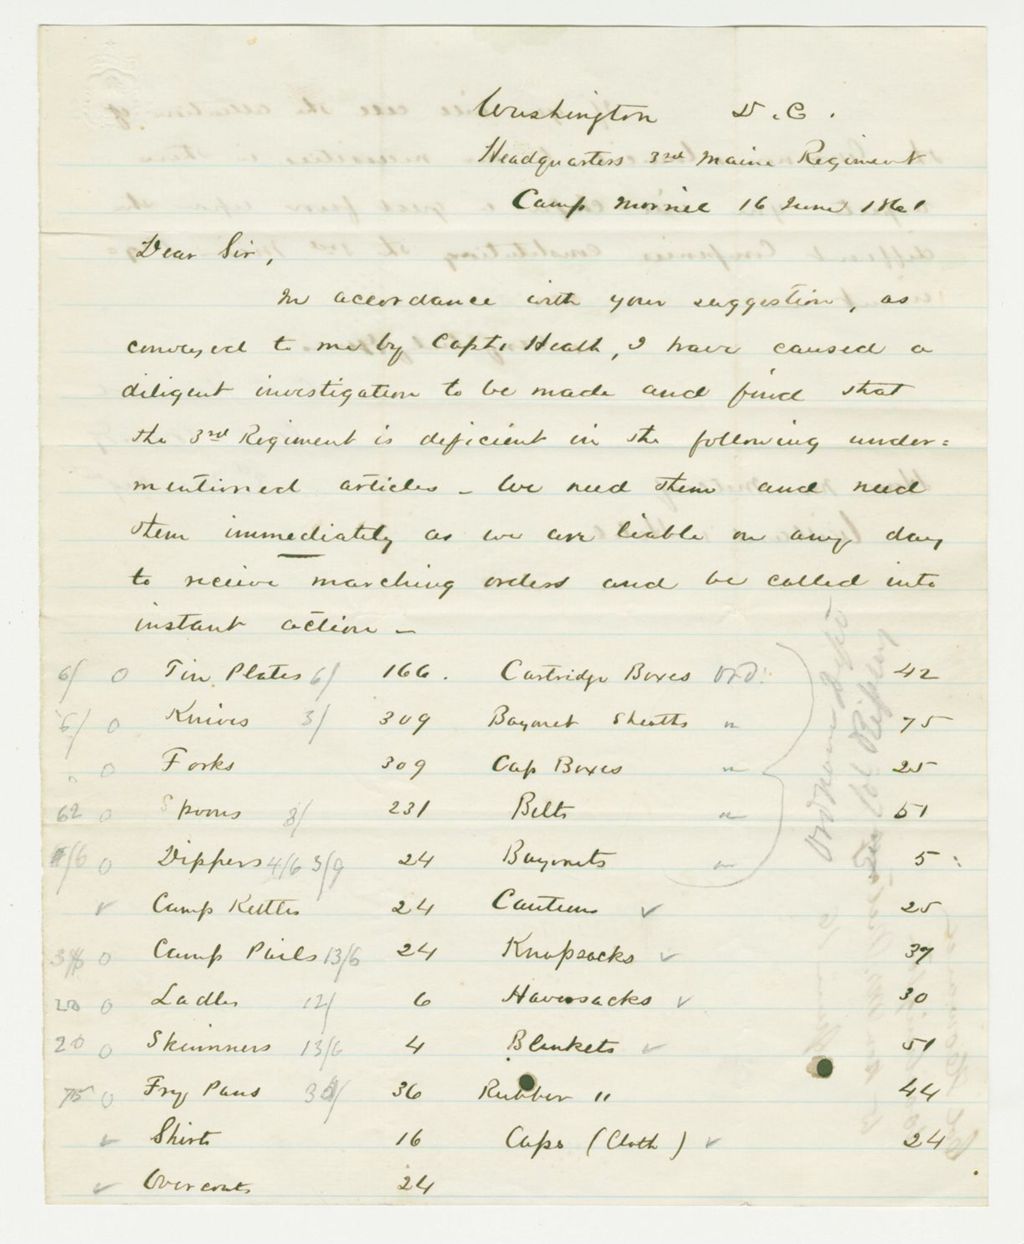 Washington D.C.
Headquarters 3rd Maine Regiment
Camp Morrill 16 June 1861
Dear Sir,
In accordance with your suggestion, as
conveyed to me by Capt. Heath, I have caused a
diligent investigation to be made and find that
the 3rd Regiment is deficient in the following under=
mentioned articles – We need them and need
them immediately as we are liable on any day
to receive marching orders and be called into
instant action –
6/ 0 Tin Plates 6/ 166. Cartridge Boxes Ord: 42
5/ 0 Knives 3/ 309 Bayonet Sheaths " 75
" 0 Forks 309 Cap Boxes " 25
62 0 Spoons 3/ 231 Belts " 51
0 Dippers 4/6 3/9 24 Bayonets " 5
✓ Camp Kettles 24 Canteens ✓ 25
0 Camp Pails 13/6 24 Knapsacks ✓ 37
0 Ladles 12/ 6 Haversacks ✓ 30
20 0 Skimmers 13/6 4 Blankets ✓ 51
75 0 Fry Pans 36 Rubber " 44
✓ Shirts 16 Caps (Cloth) ✓ 24
✓ Overcoats 24